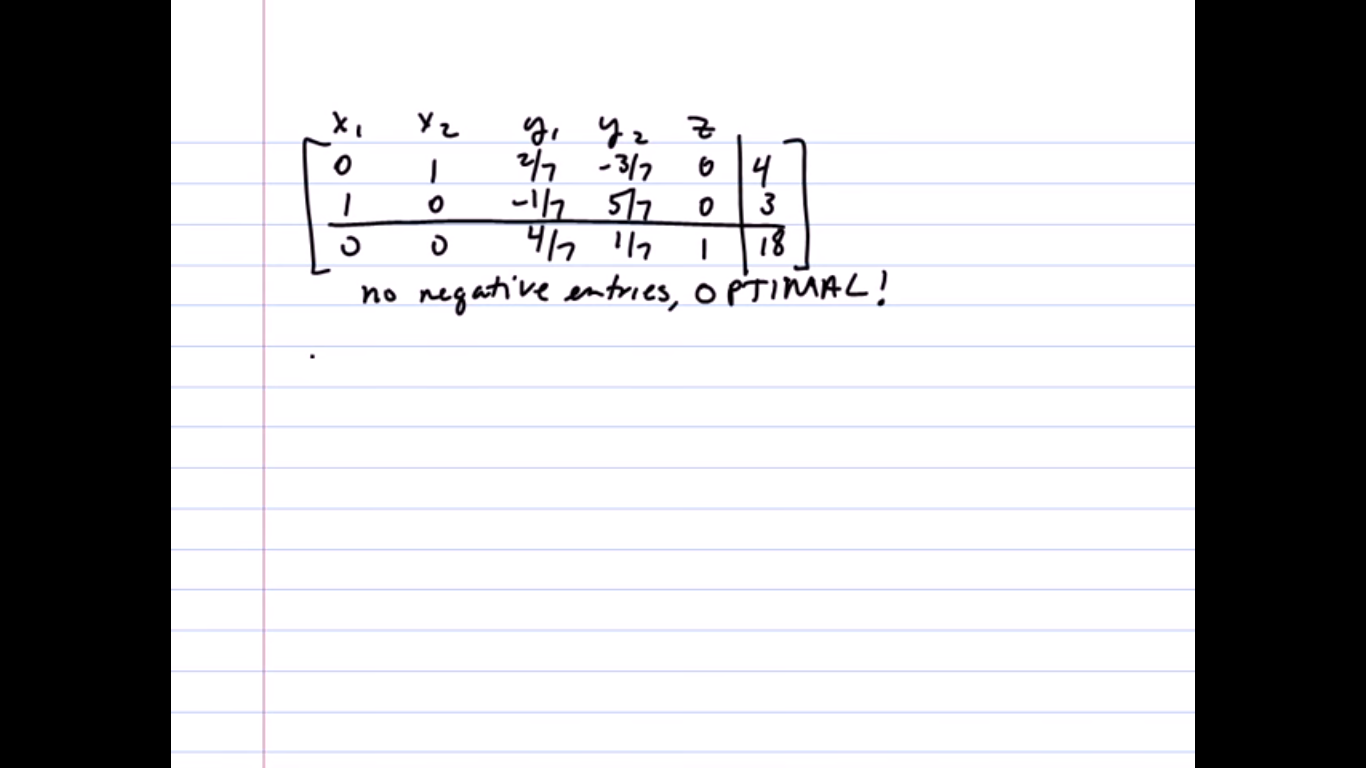 x₁ x₂ y₁ y₂ z
0 1 2/7 -3/7 0 4
1 0 -1/7 5/7 0 3
0 0 4/7 1/7 1 18
no negative entries, OPTIMAL!